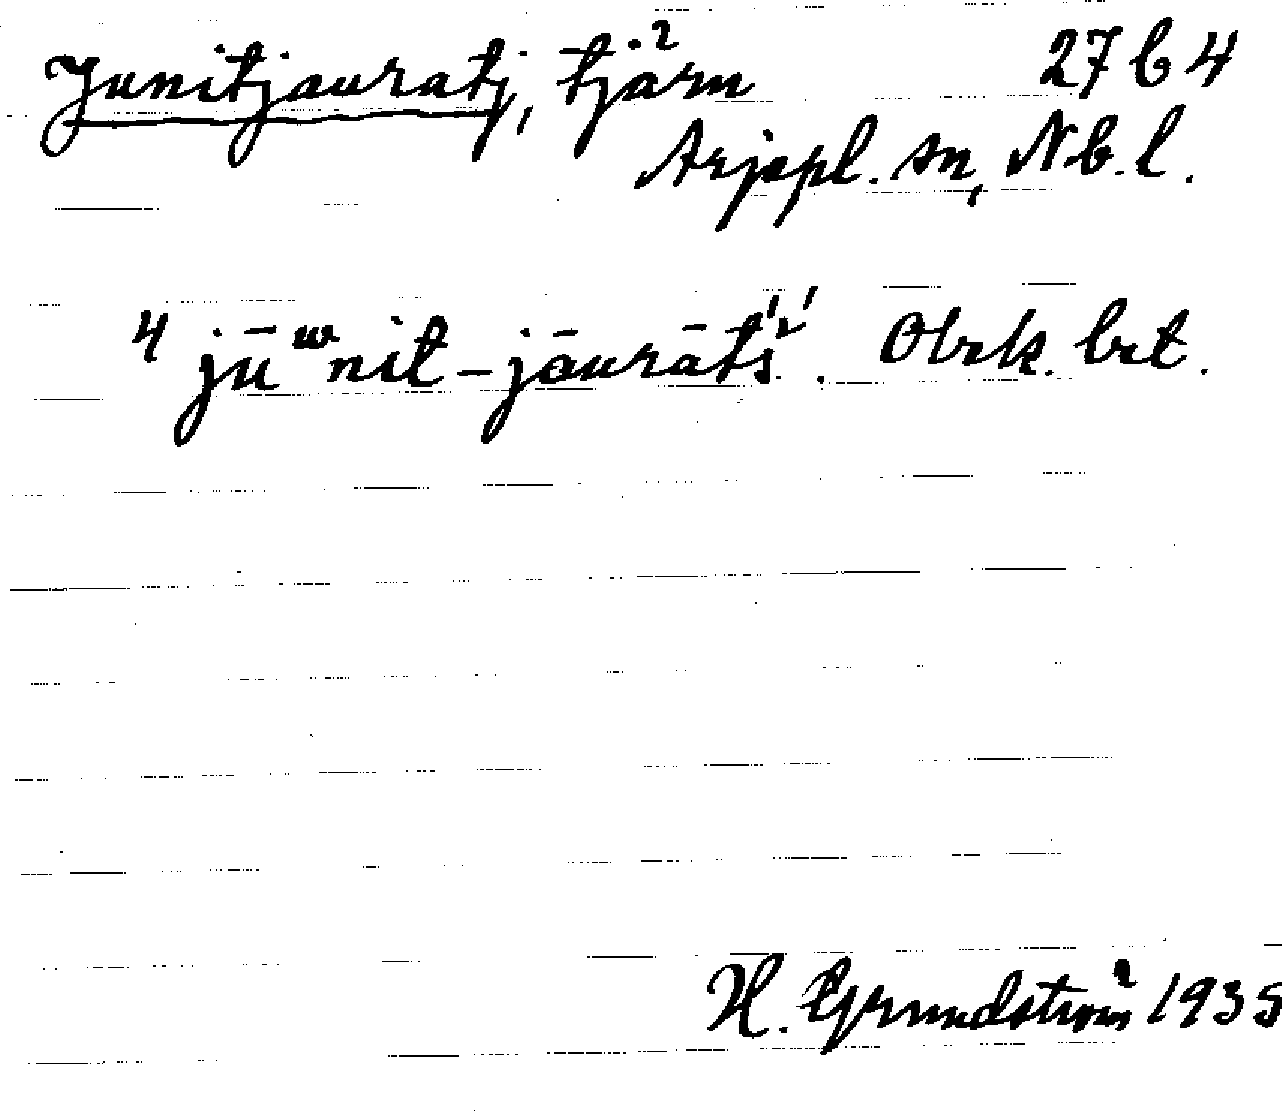 Junitjauratj, tjärn 27 b 4
Arjepl. sn, Nb. l.
4 jūʷnit-jāurātś'. Obrk. brt.
H. Grundström 1935